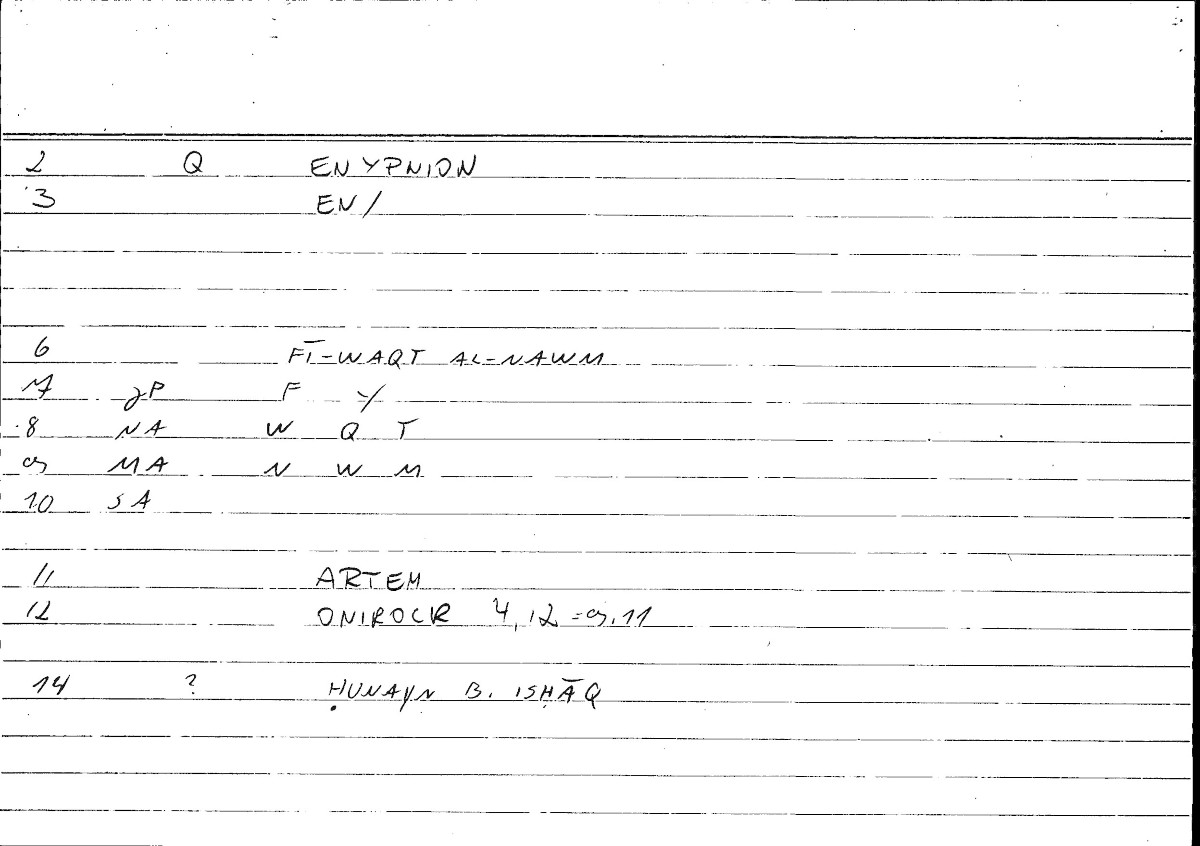 2 Q ENYPNION
3 EN/
6 FĪ-WAQT AL-NAWM
7 gP F Y
8 NA W Q T
9 MA N W M
10 SA
11 ARTEM
12 ONIROCR 4,12-9,11
14 ? ḤUNAYN B. ISḤĀQ